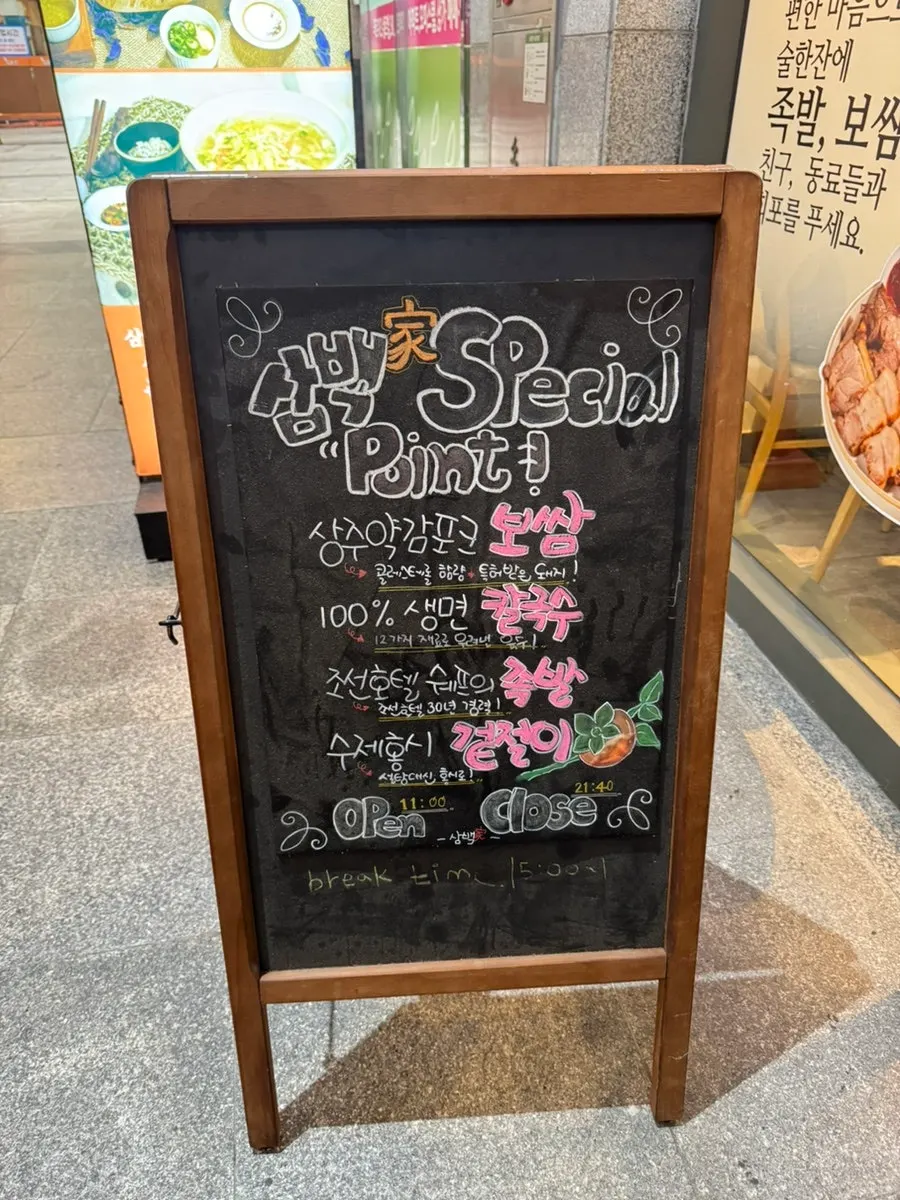 편한 마음으로
술한잔에
족발, 보쌈
친구, 동료들과
회포를 푸세요.
삼백家 Special
"Point!
상주약감포크 보쌈
콜레스테롤 함량↓ 특허받은 돼지!
100% 생면 칼국수
12가지 재료로 우려낸 육수!
조선호텔 쉐프의 족발
조선호텔 30년 경력!
수제홍시 겉절이
설탕대신 홍시로!
Open 11:00 Close 21:40
- 삼백家 -
break time 15:00~1